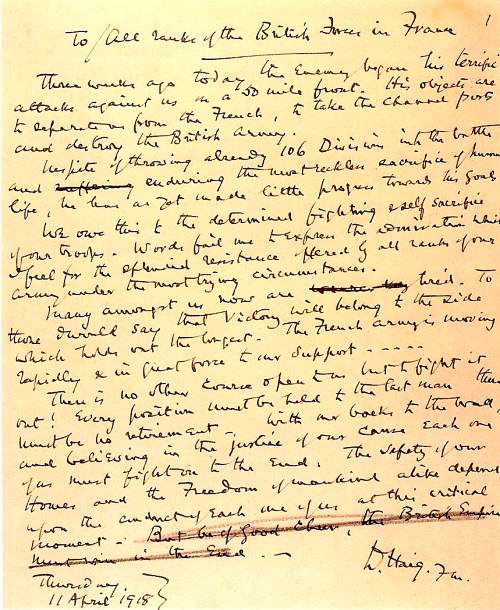 1
To / All ranks of the British Forces in France
Three weeks ago today the Enemy began his terrific
attacks against us on a 50 mile front. His objects are
to separate us from the French, to take the Channel ports
and destroy the British Army.
Inspite of throwing already 106 Divisions into the battle
and suffering enduring the most reckless sacrifice of human
life, he has as yet made little progress towards his goals
We owe this to the determined fighting & self sacrifice
of our troops. Words fail me to express the admiration which
I feel for the splendid resistance offered by all ranks of our
Army under the most trying circumstances.
Many amongst us now are tired. To
those I would say that Victory will belong to the side
which holds out the longest. The French Army is moving
rapidly & in great force to our support - - - - -
There is no other course open to us but to fight it
out! Every position must be held to the last man there
must be no retirement. With our backs to the wall
and believing in the justice of our cause each one
of us must fight on to the end. The safety of our
Homes and the Freedom of mankind alike depend
upon the conduct of each one of us at this critical
moment - But be of good cheer, the British Empire
must win in the End. -
D. Haig. F.M.
Thursday
11 April 1918